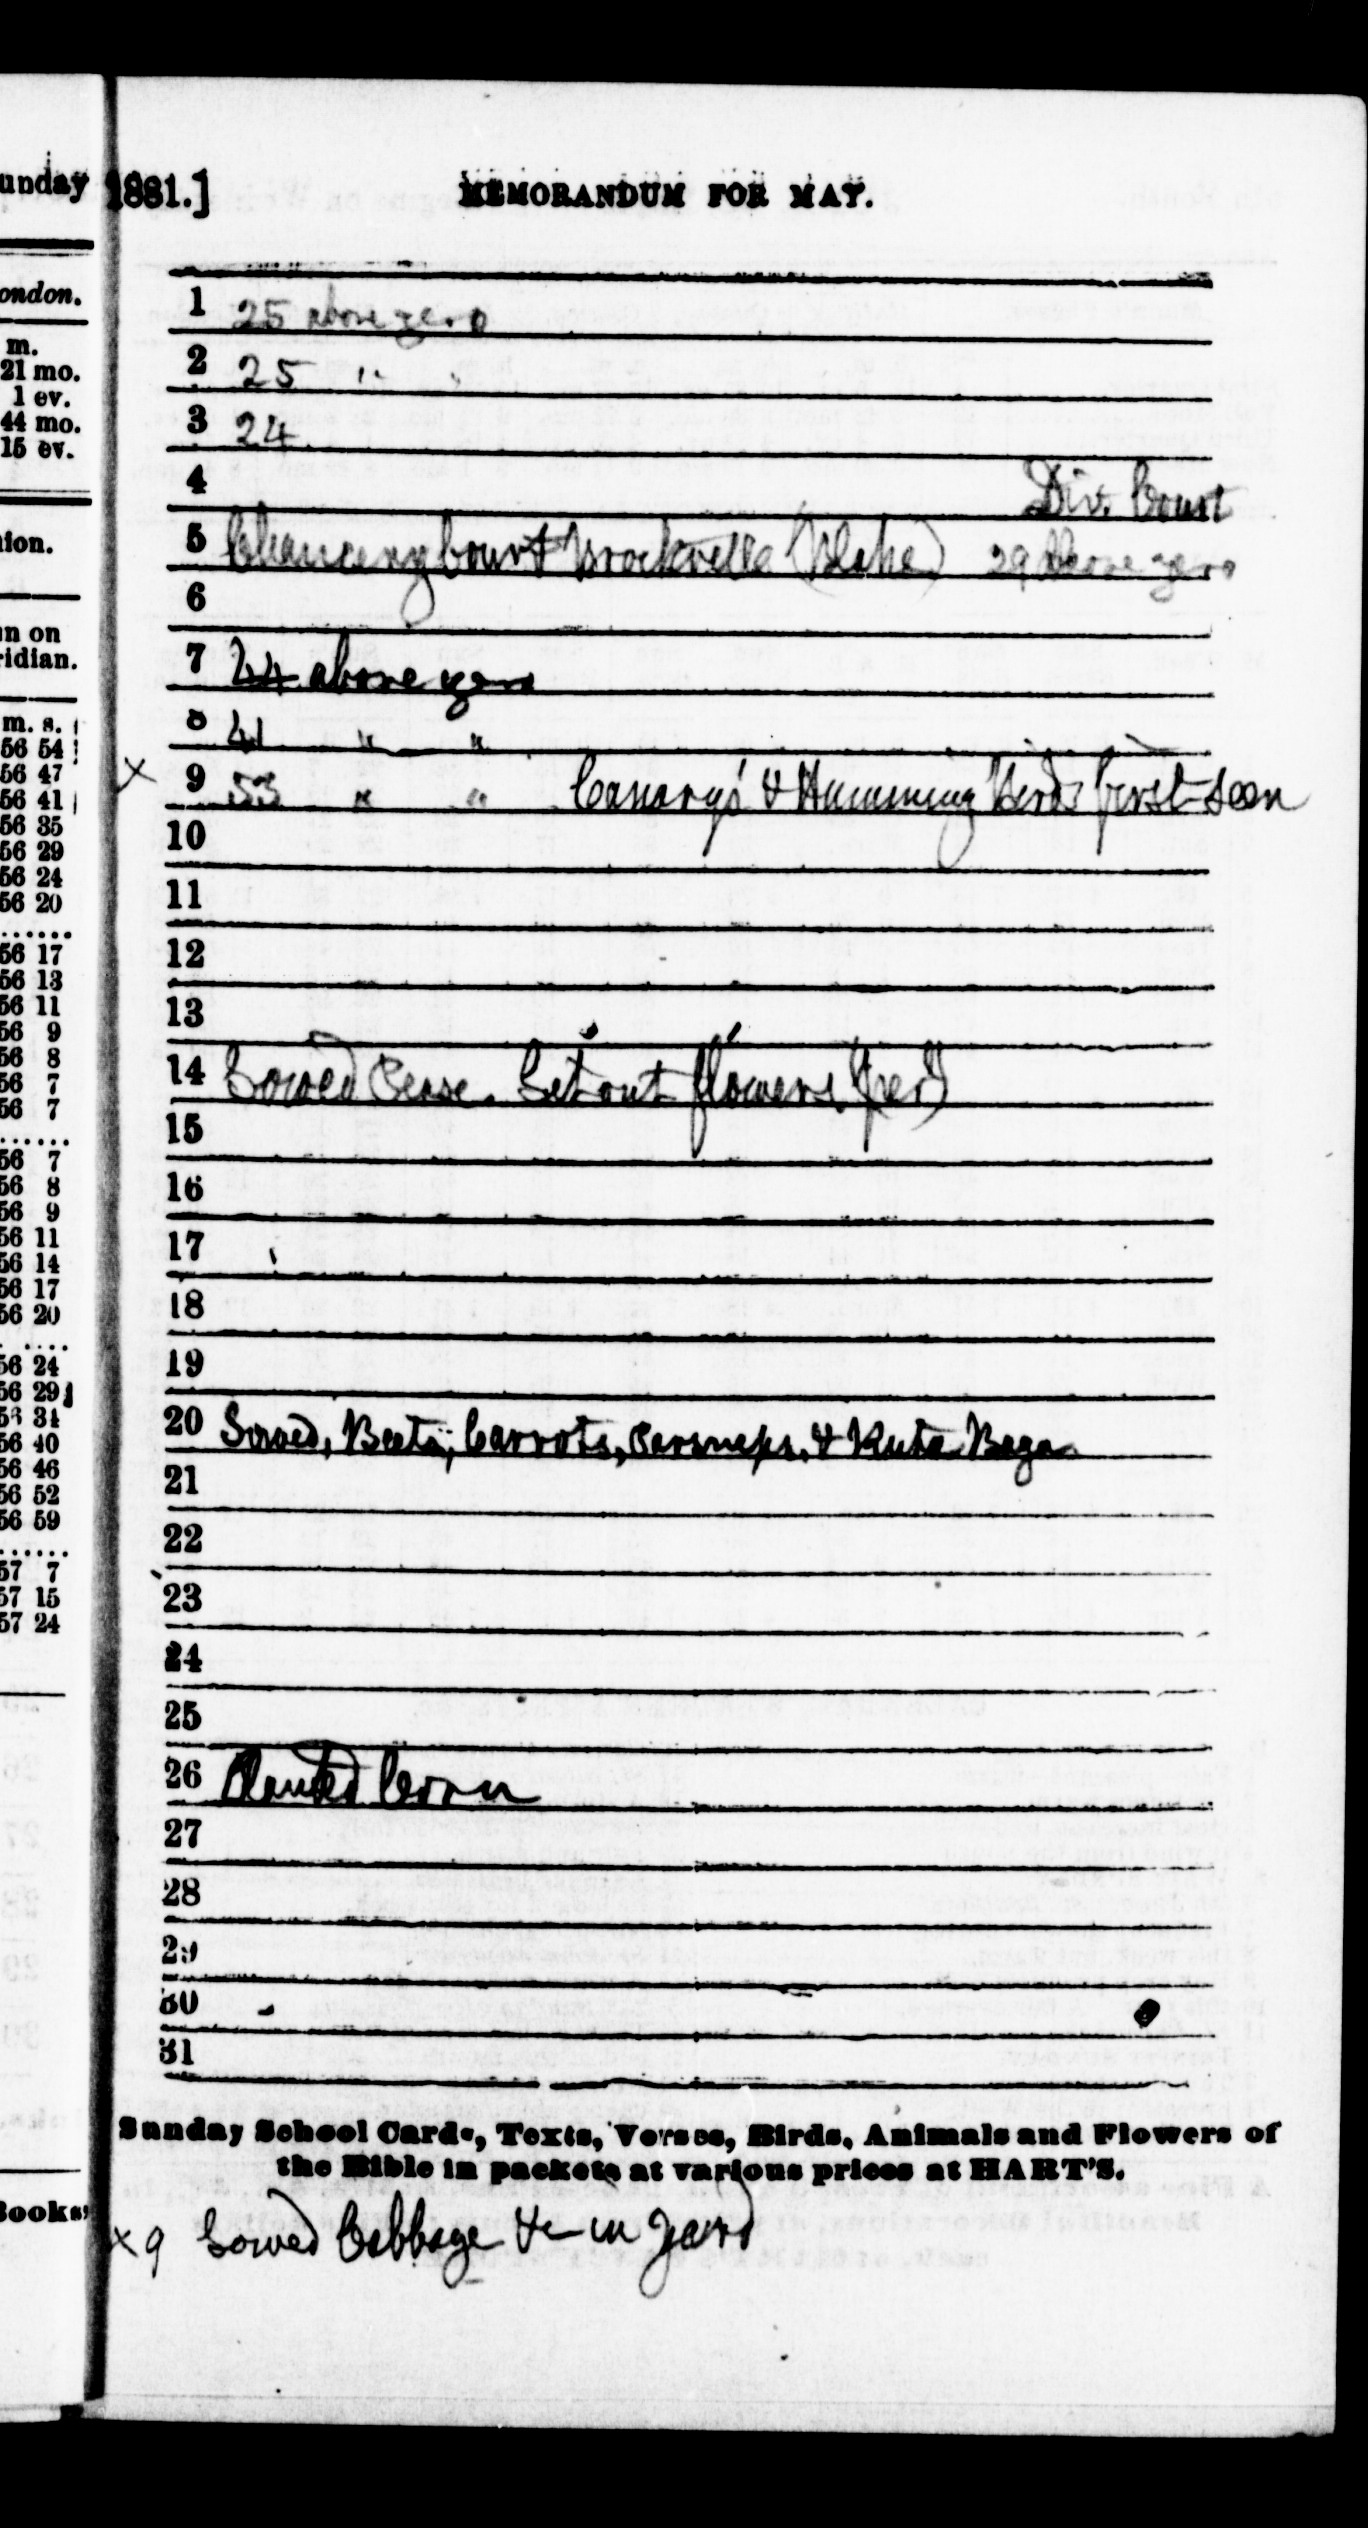 unday
ondon.
m.
21 mo.
1 ev.
44 mo.
15 ev.
ion.
n on
ridian.
m. s.
56 54
56 47
56 41
56 35
56 29
56 24
56 20
.......
56 17
56 13
56 11
56 9
56 8
56 7
56 7
......
56 7
56 8
56 9
56 11
56 14
56 17
56 20
....
56 24
56 29
56 34
56 40
56 46
56 52
56 59
......
57 7
57 15
57 24
Books
1881.] MEMORANDUM FOR MAY.
1 25 above zero
2 25 " "
3 24
4 Div. Court
5 Chancery Court Brockville (Blake) 29 above zero
6
7 44 above zero
8 41 " "
x 9 53 " " Canary's & Humming Birds first seen
10
11
12
13
14 Sowed Pease. Set out flowers (per)
15
16
17
18
19
20 Sowed, Beets, Carrots, Parsneps, & Ruta Baga
21
22
23
24
25
26 Planted Corn
27
28
29
30
31
Sunday School Cards, Texts, Verses, Birds, Animals and Flowers of
the Bible in packets at various prices at HART'S.
x 9 Sowed Cabbage &c in yard